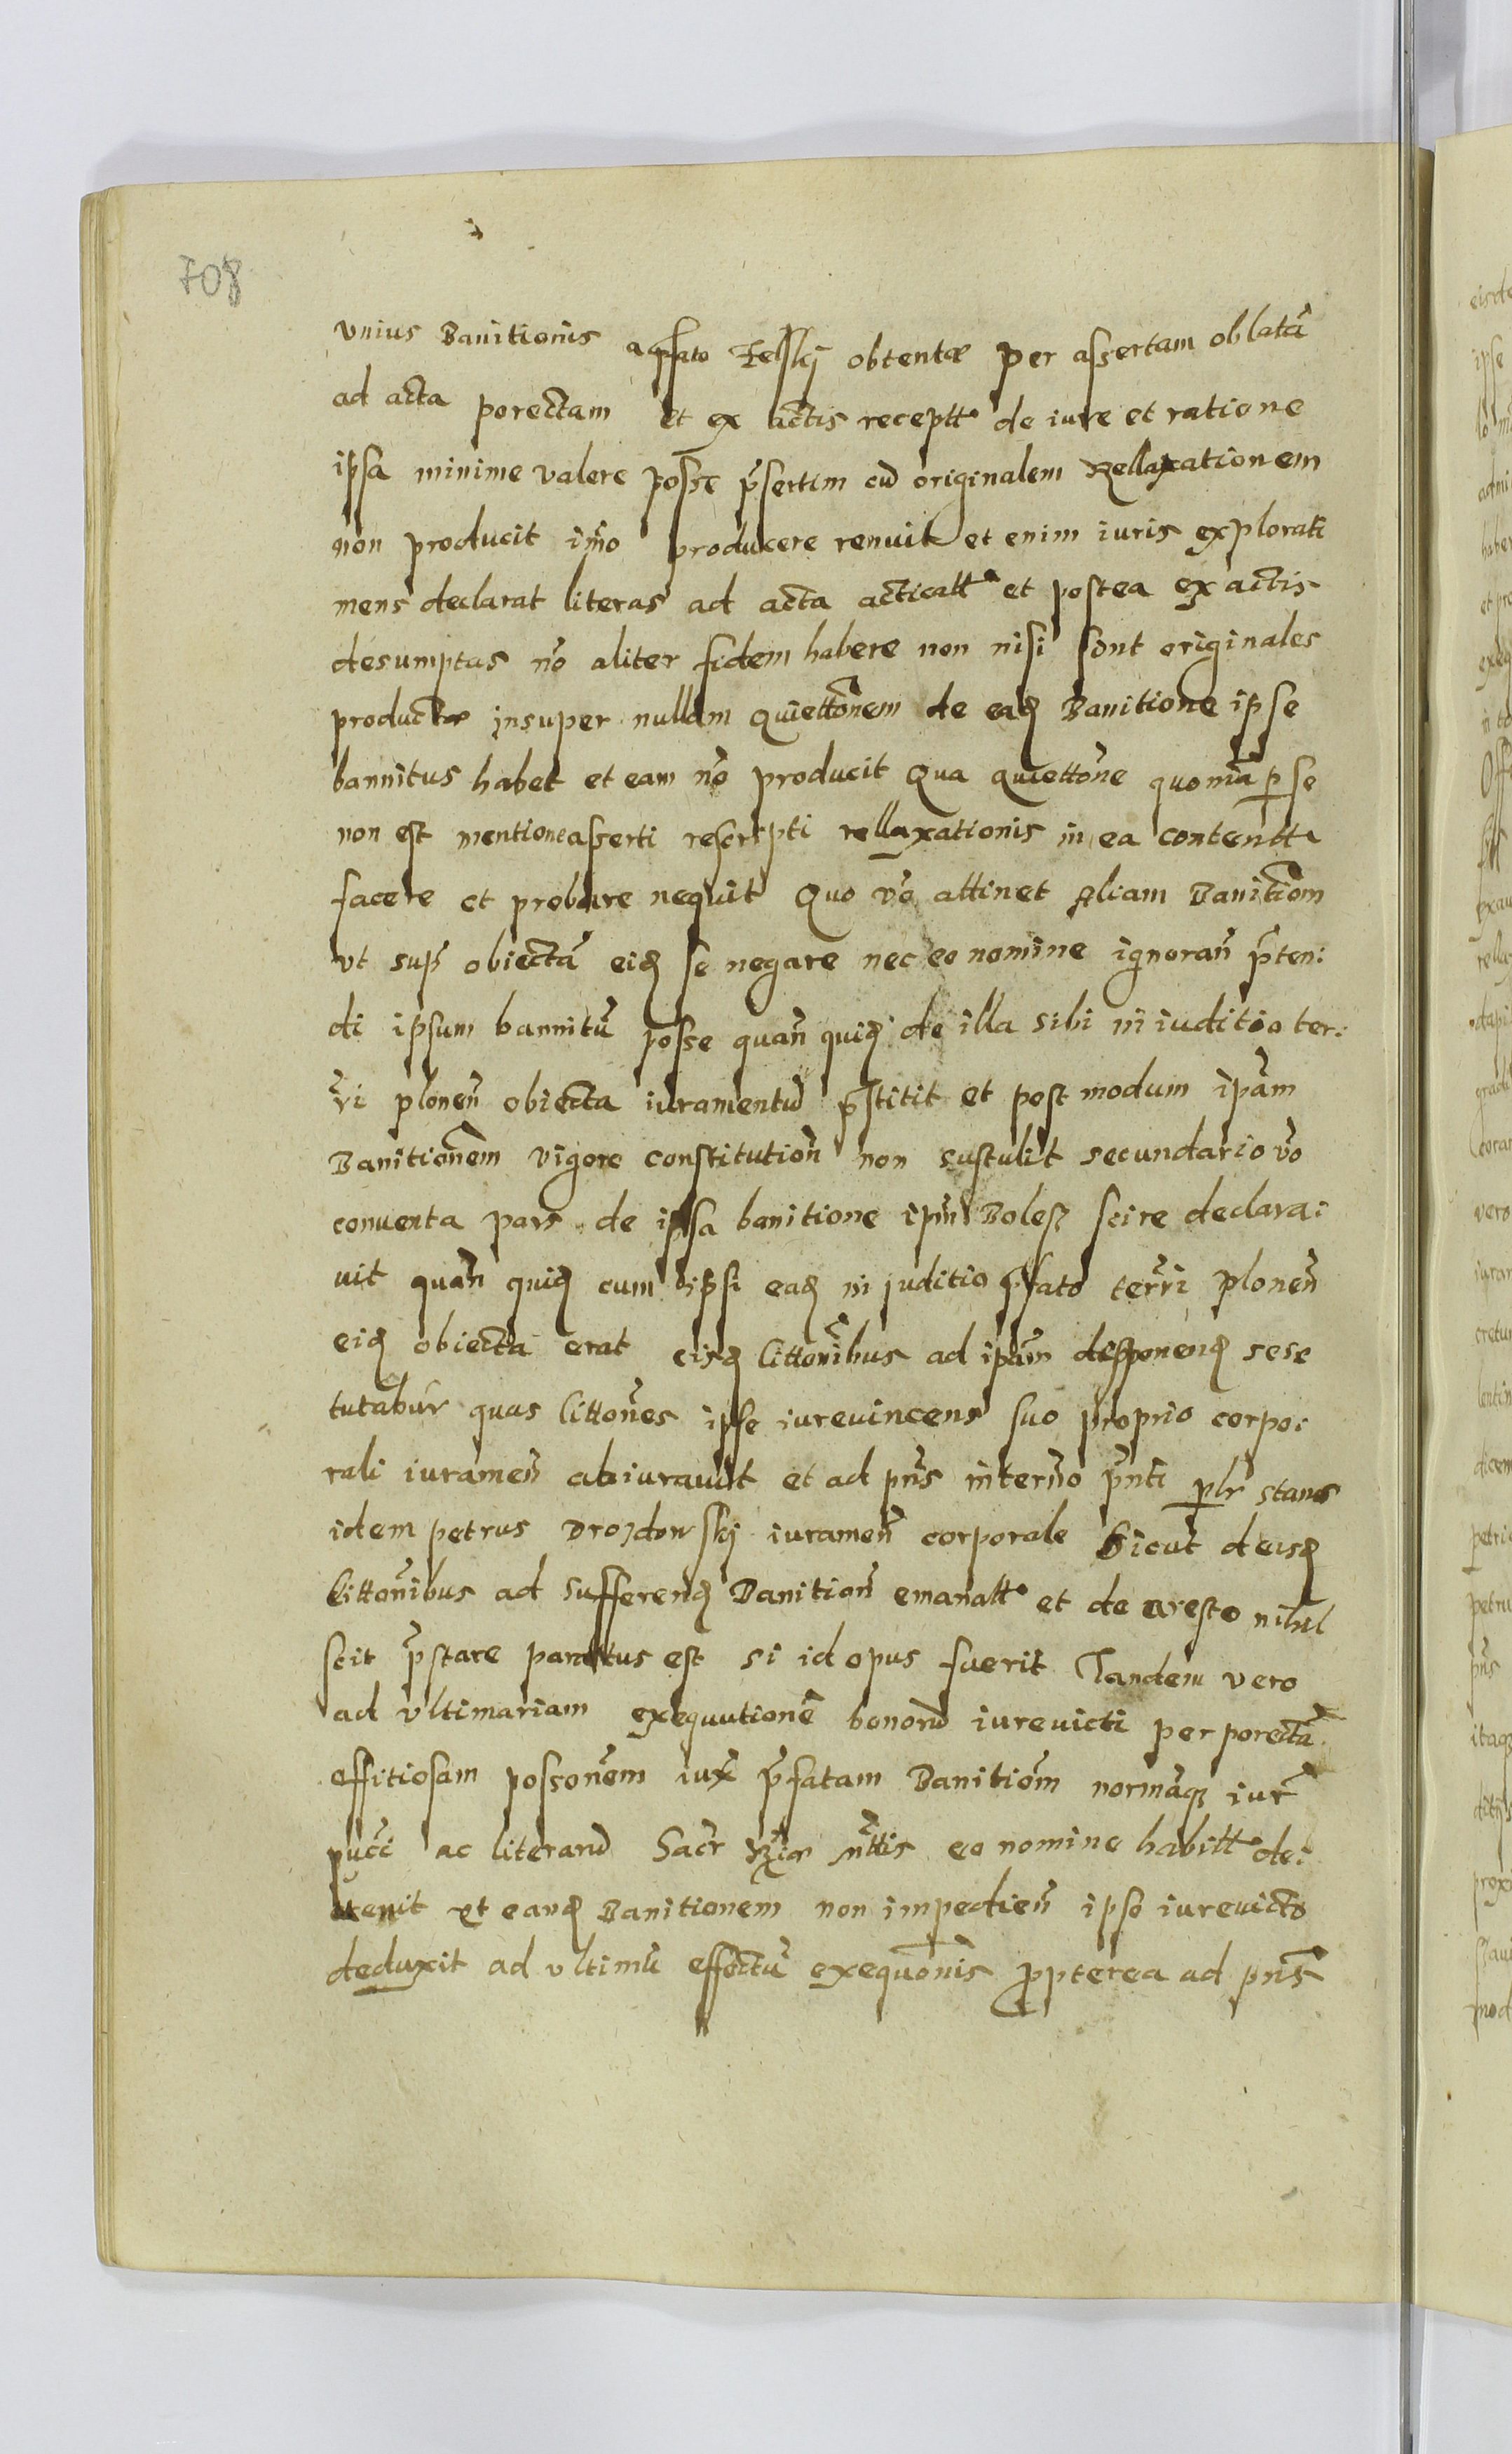 708
vnius Banitionis a p̃fato Zelskj obtentæ per assertam oblatã
ad acta porectam et ex actis receptt. de iure et ratione
ipsa minime valere posse p̃sertim cũ originalem Rellaxationem
non producit im̃o producere renuit et enim iuris explorati
mens declarat literas ad acta acticatt. et postea ex actis
desumptas nõ aliter fidem habere non nisi sint originales
productæ insuper nullam quiettõnem de eaḍ Banitione ipse
bannitus habet et eam nõ producit Qua quiettõne quoniã p se
non est mentione asserti rescripti rellaxationis in ea contentt.
facere et probare nequit Quo võ attinet aliam Banitiõm
vt sup̃ obiectã eiḍ se negare nec eo nomine ignorañ p̃ten:
di ipsum bannitũ posse quañ quiḍ de illa sibi in iuditio ter:
r̃i plonen̄ obiecta iuramentũ p̃stitit et post modum ip̃am
Banitioñem vigore constitutioñ non sustulit secundario võ
conuenta pars de ipsa banitione ip̃m Bolesz scire declara:
uit quañ quiḍ cum ipsi eaḍ in juditio p̃fato terr̃i plonen̄
eiḍ obiecta erat eisḍ littoñibus ad ip̃am depponenḍ sese
tutabũr quas littoñes ipse iureuincens suo proprio corpo:
rali iurameñ abiurauit et ad pñs in termõ pñti plr̃ stans
idem petrus Drozdowskj iurameñ corporale Sicut de eisḍ
littoñibus ad sufferenḍ Banitioñ emanatt. et de aresto nihil
scit p̃stare paratus est si id opus fuerit Tandem vero
ad vltimariam exequutionẽ bonorũ iureuicti per porectã
effitiosam possoñem iux̃ p̃fatam Banitiõm normãq₃ iur̃
pucĩ ac literarũ Sacr̃ R̃iæ m̃ttis eo nomine habitt. de:
uenit et eanḍ Banitionem non impedieñ ipse iureuicto
deduxit ad vltimũ effectũ exequoñis ꝓpterea ad pñs̃